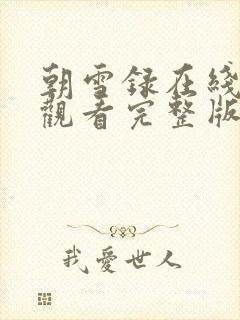 朝雪録在綫
觀看完整版
我愛世人